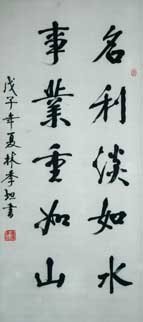 名利淡如水
事業重如山
戊子年夏林季恕書